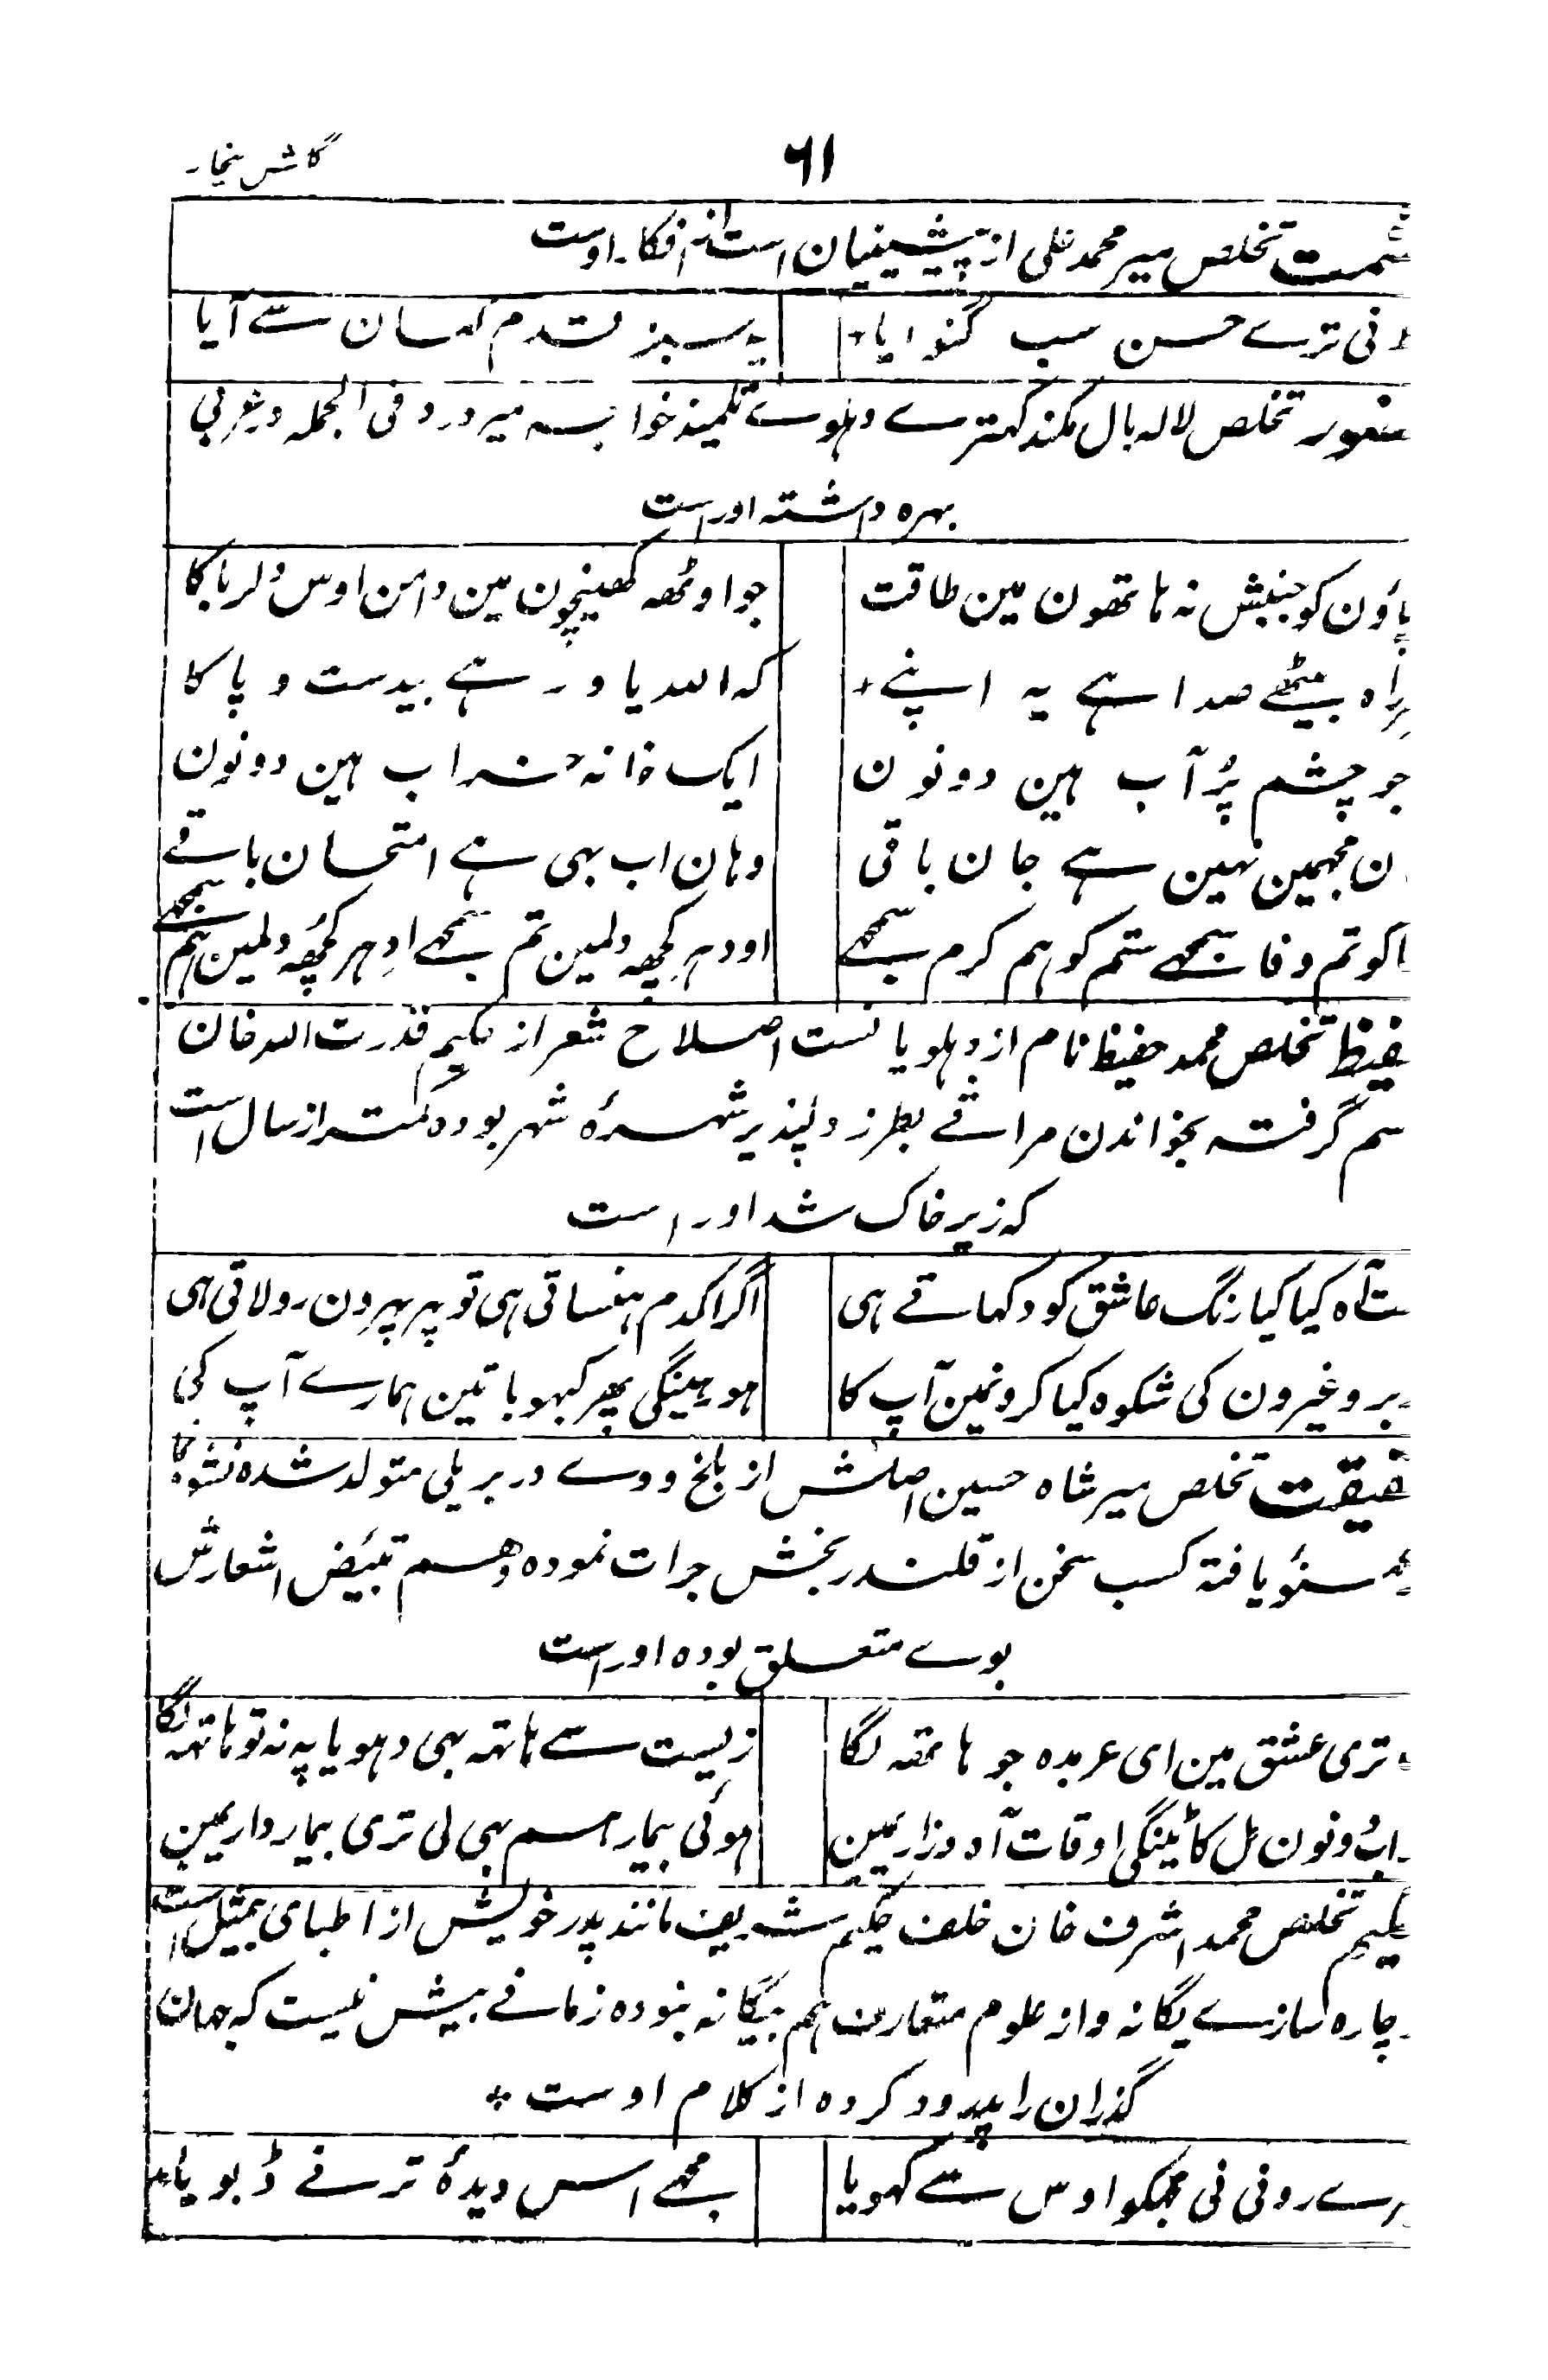 ۶۱
گلشن بیخار
حشمت تخلص میر محمد علی از پیشینیان است از افکار اوست
نی ترے حسن سب گنوایا یہ سبز قدم کہان سے آیا
تخلص لالہ بال مکند کہترے دہلوے تلمیذ خواجہ میر درد فی الجملہ در عربی
بہرہ داشتہ اوراست
پاؤن کو جنبش نہ ہاتھون مین طاقت جو اوٹھہ کھینچون مین دامن اوس دلربا کا
راہ بیٹھے صدا ہے یہ اپنے کہ اللہ یاور ہے بیدست و پا کا
جو چشم پُر آب ہین دونون ایک خانہ خراب ہین دونون
ن مجہمین نہین ہے جان باقی وہان اب بہی ہے امتحان باقے
کو تم وفا سمجھے ستم کو ہم کرم سمجھے اودہر کچھہ دلمین تم سمجھے ادہر کچھہ دلمین ہم سمجھے
حفیظ تخلص محمد حفیظ نام از دہلویانست اصلاح شعر از حکیم قدرت اللہ خان
گرفتہ بخواندن مراثے بطرز دلپذیر شہرۂ شہر بودہ کمتر از سال است
کہ زیر خاک شد اوراست
آہ کیا کیا رنگ عاشق کو دکہاتے ہی اگر اکدم ہنساتی ہی تو پہر پہرون رولاتی ہی
بر و غیرون کی شکوہ کیا کرونمین آپ کا ہو ہینگی پھر کبہو باتین ہمارے آپ کی
حقیقت تخلص میر شاہ حسین اصلش از بلخ و وے در بریلی متولد شدہ نشو و نما
یافتہ کسب سخن از قلندر بخش جرات نمودہ و ہم تبیض اشعارش
بوے متعلق بودہ اوراست
تری عشق مین ای عربدہ جو ہاتھہ لگا زیست سے ہاتہہ بہی دہویا پہ نہ تو ہاتہہ لگا
اب دونون مل کاٹینگی اوقات آہ و زاریمین ہوئی بیمار ہم بہی لی تری بیمارداریمین
حکیم تخلص محمد اشرف خان خلف حکیم شریف مانند پدر خویش از اطبای بیمثیل است
چارہ سازے یگانہ و از علوم متعارف ہم بیگانہ نبودہ زمانے بیش نیست کہ جہان
گذران را پدرود کردہ از کلام اوست
رے رونی نی مجکو اوس سے کہویا مجھے اس دیدۂ تر نے ڈبویا